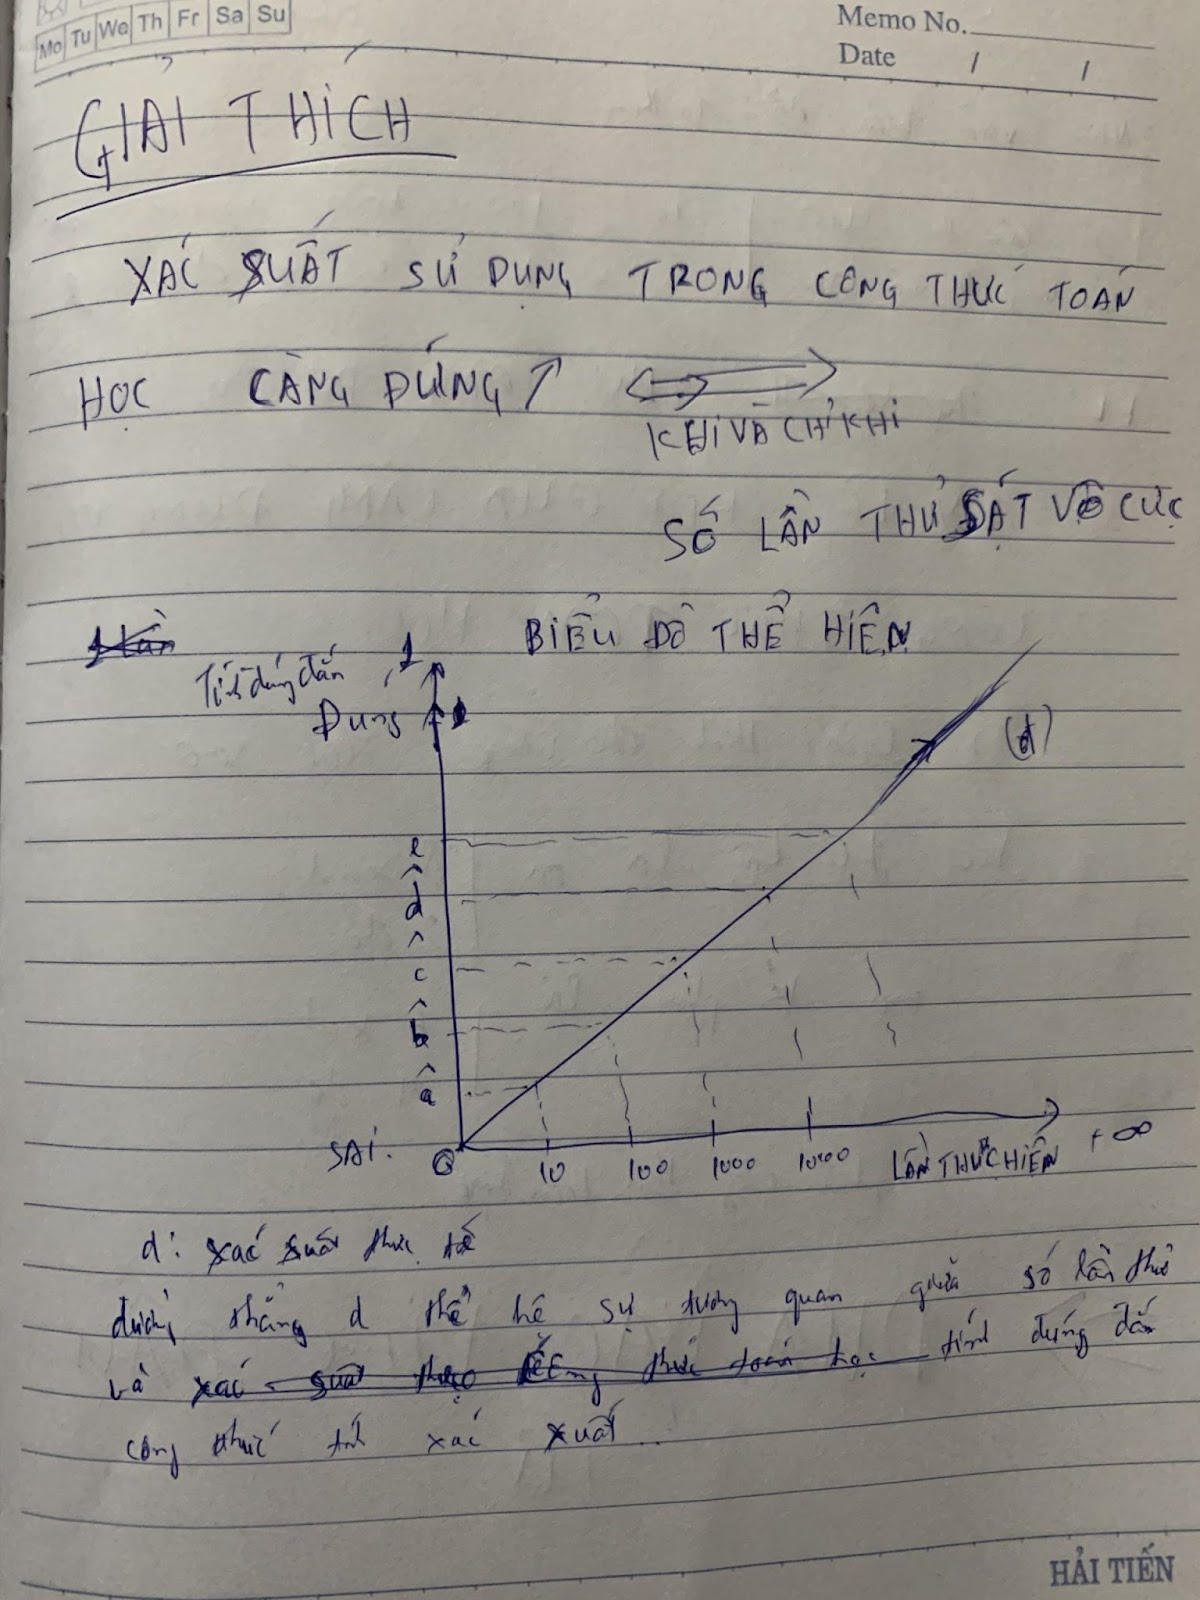 Mo Tu We Th Fr Sa Su
Memo No.
Date / /
GIẢI THÍCH
XÁC SUẤT SỬ DỤNG TRONG CÔNG THỨC TOÁN
HỌC CÀNG ĐÚNG ↑
KHI VÀ CHỈ KHI
SỐ LẦN THỬ SÁT VÔ CỰC
BIỂU ĐỒ THỂ HIỆN
Tính đúng đắn 1
Đúng
(d)
e
d̂
ĉ
b̂
â
SAI. 0 10 100 1000 10000 LẦN THỰC HIỆN +∞
d: xác suất thực tế
đường thẳng d thể hệ sự tương quan giữa số lần thử
và tính đúng đắn
công thức tính xác xuất
HẢI TIẾN